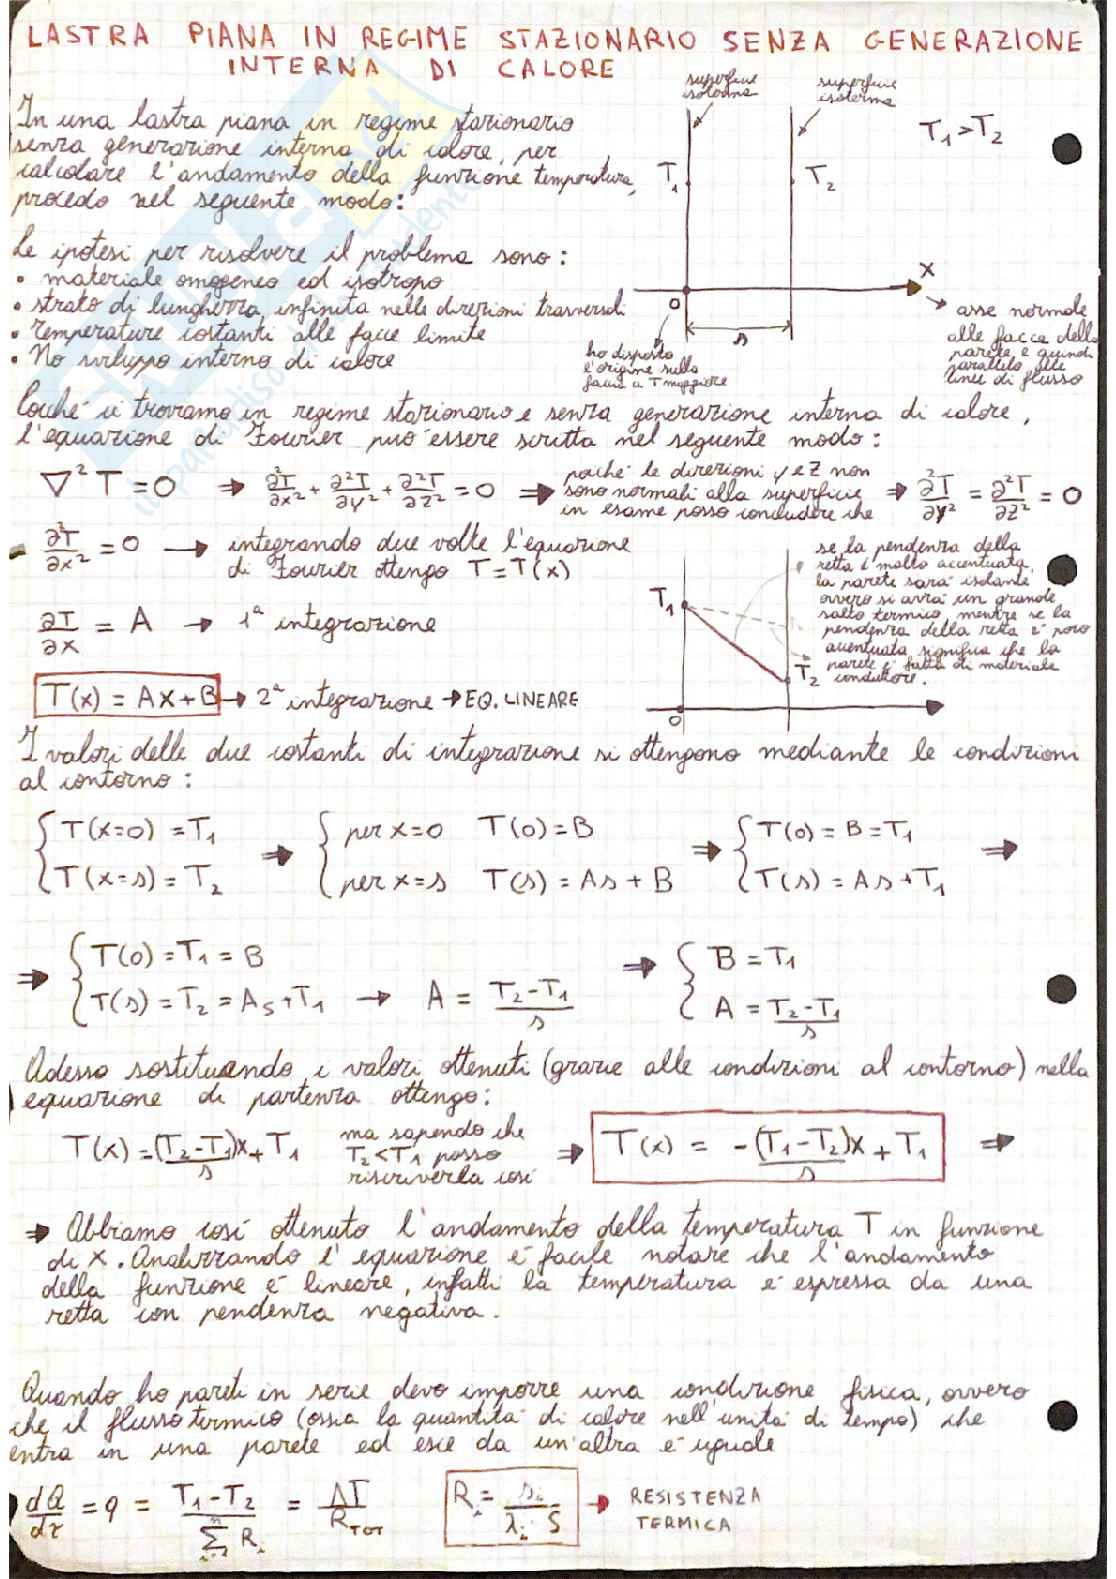 LASTRA PIANA IN REGIME STAZIONARIO SENZA GENERAZIONE
INTERNA DI CALORE
In una lastra piana in regime stazionario
senza generazione interna di calore, per
calcolare l'andamento della funzione temperatura,
procedo nel seguente modo:
superficie
isoterma
superficie
isoterma
T₁>T₂
T₁
T₂
x
0
s
ho disposto
l'origine sulla
faccia a T maggiore
asse normale
alle facce della
parete e quindi
parallelo alle
linee di flusso
Le ipotesi per risolvere il problema sono:
• materiale omogeneo ed isotropo
• strato di lunghezza infinita nelle direzioni trasversali
• Temperature costanti alle facce limite
• No sviluppo interno di calore
Poiché ci troviamo in regime stazionario e senza generazione interna di calore,
l'equazione di Fourier può essere scritta nel seguente modo:
∇²T = 0 ⇒ ∂²T/∂x² + ∂²T/∂y² + ∂²T/∂z² = 0 ⇒ poiché le direzioni y e z non
sono normali alla superficie
in esame posso concludere che ⇒ ∂²T/∂y² = ∂²T/∂z² = 0
∂²T/∂x² = 0 → integrando due volte l'equazione
di Fourier ottengo T=T(x)
∂T/∂x = A → 1ª integrazione
T(x) = Ax+B → 2ª integrazione → EQ. LINEARE
T₁
T₂
0
se la pendenza della
retta è molto accentuata,
la parete sarà isolante
ovvero si avrà un grande
salto termico, mentre se la
pendenza della retta è poco
accentuata significa che la
parete è fatta di materiale
conduttore.
I valori delle due costanti di integrazione si ottengono mediante le condizioni
al contorno:
{ T(x=0) = T₁ ⇒ { per x=0 T(0)=B ⇒ { T(0)=B=T₁ ⇒
T(x=s) = T₂ per x=s T(s) = As + B T(s) = As+T₁
⇒ { T(0)=T₁=B ⇒ { B=T₁
T(s) = T₂ = As+T₁ → A = (T₂-T₁)/s A = (T₂-T₁)/s
Adesso sostituendo i valori ottenuti (grazie alle condizioni al contorno) nella
equazione di partenza ottengo:
T(x) = (T₂-T₁)x/s + T₁ ma sapendo che
T₂<T₁ posso
riscriverla così ⇒ T(x) = -(T₁-T₂)x/s + T₁ ⇒
⇒ Abbiamo così ottenuto l'andamento della temperatura T in funzione
di x. Analizzando l'equazione è facile notare che l'andamento
della funzione è lineare, infatti la temperatura è espressa da una
retta con pendenza negativa.
Quando ho pareti in serie devo imporre una condizione fisica, ovvero
che il flusso termico (ossia la quantità di calore nell'unità di tempo) che
entra in una parete ed esce da un'altra è uguale
dQ/dτ = q = (T₁-T₂)/(Σⁿ Rᵢ) = ΔT/R_TOT Rᵢ = sᵢ/(λᵢ · S) → RESISTENZA
TERMICA